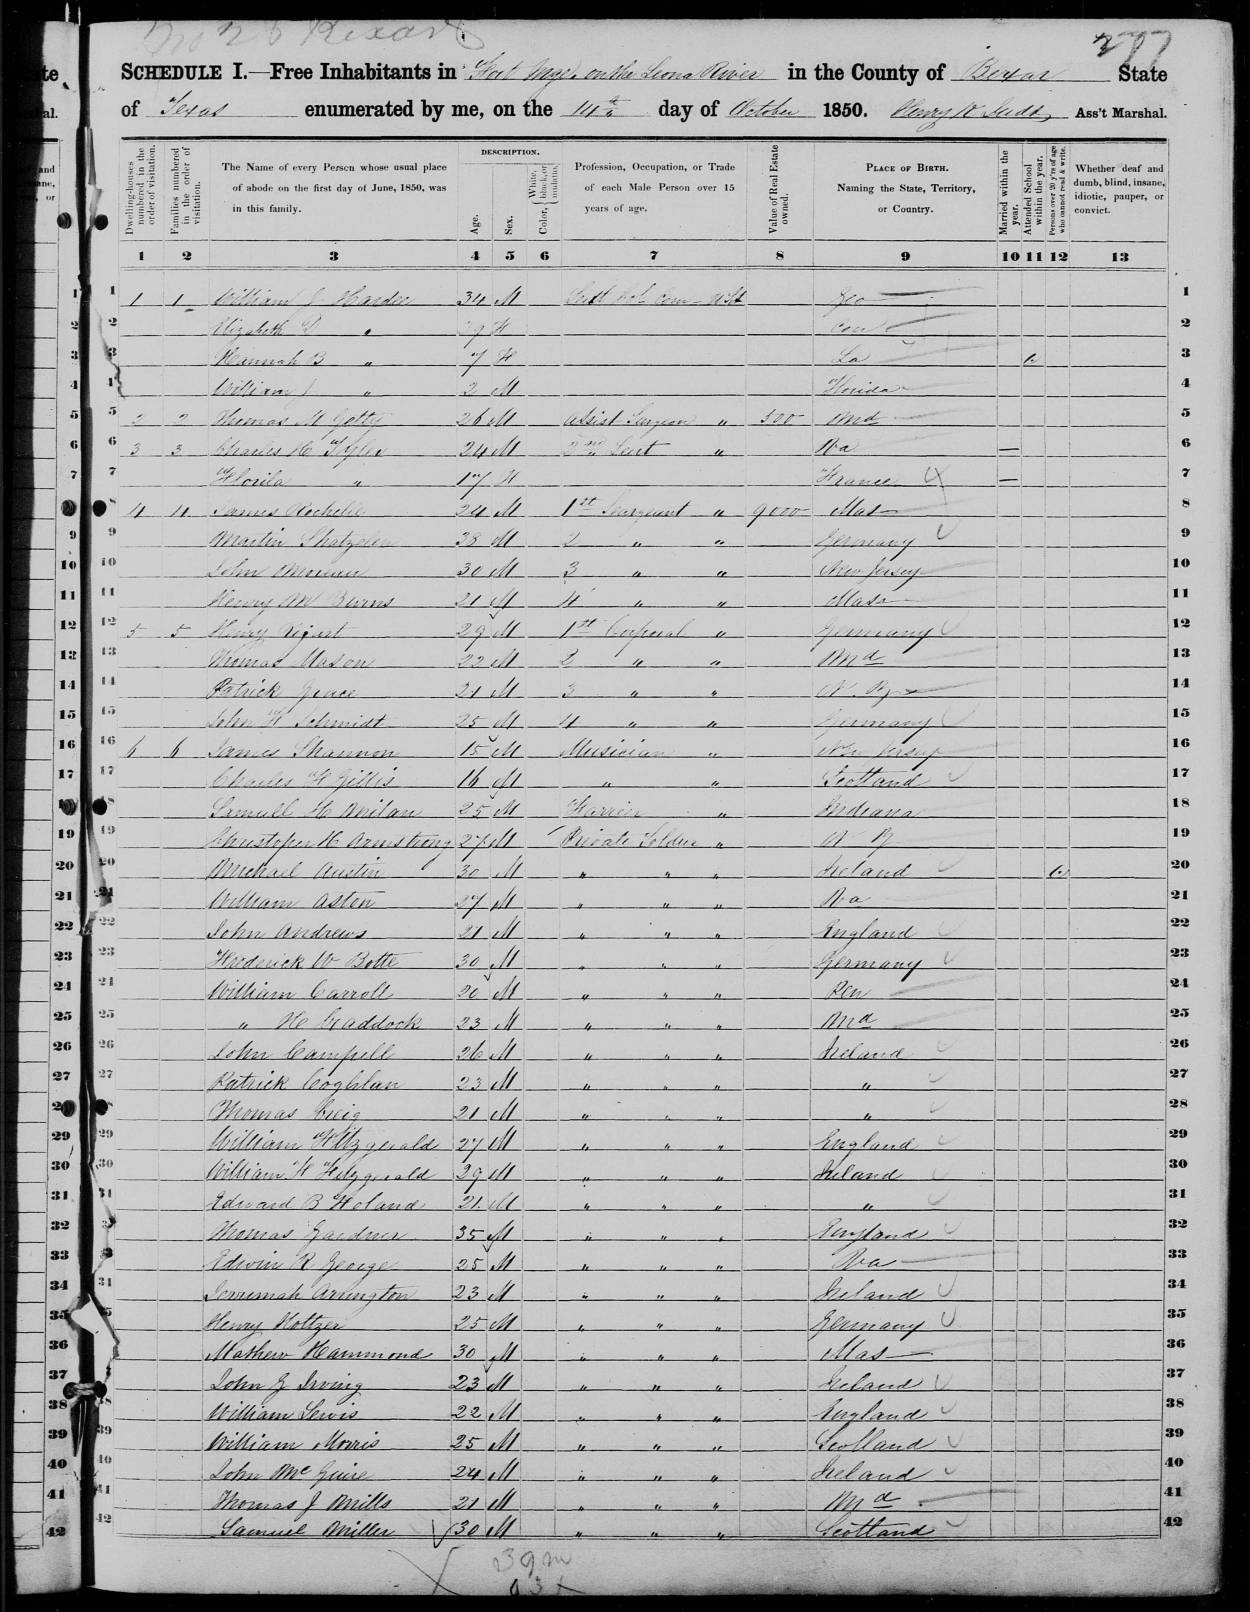 277
SCHEDULE I.—Free Inhabitants in Fort Inge on the Leona River in the County of Bexar State
of Texas enumerated by me, on the 14th day of October 1850. Henry Ass't Marshal.
Dwelling-houses numbered in the order of visitation.
Families numbered in the order of visitation.
The Name of every Person whose usual place of abode on the first day of June, 1850, was in this family.
DESCRIPTION.
Age.
Sex.
Color, White, black, or mulatto.
Profession, Occupation, or Trade of each Male Person over 15 years of age.
Value of Real Estate owned.
PLACE OF BIRTH. Naming the State, Territory, or Country.
Married within the year.
Attended School within the year.
Persons over 20 y'rs of age who cannot read & write.
Whether deaf and dumb, blind, insane, idiotic, pauper, or convict.
1 2 3 4 5 6 7 8 9 10 11 12 13
1 1 1 William J Hardee 34 M Geo 1
2 Elizabeth D " 29 F 2
3 Hannah B " 7 F La 3
4 William J " 2 M Florida 4
5 2 2 Thomas M Getty 26 M Assist Surgeon " 500 Md 5
6 3 3 Charles H Tyler 24 M 2nd Leut " Va — 6
7 " 17 F France — 7
8 4 4 James Rochelle 24 M 1st Seargeant " 9000 Mas 8
9 Martin 38 M 2 " " Germany 9
10 John 30 M 3 " " New Jersey 10
11 Henry M Burns 21 M 4 " " Mass 11
12 5 5 Henry 29 M 1st Corporal " Germany 12
13 Thomas Mason 22 M 2 " " Md 13
14 Patrick Grace 21 M 3 " " N. Y 14
15 John F Schmidt 25 M 4 " " Germany 15
16 6 6 James Shannon 15 M Musician " New Jersey 16
17 Charles F Gillis 16 M " " Scotland 17
18 Samuel H Milan 25 M Farrier " Indiana 18
19 Christoper H Armstrong 27 M Private Soldier " N Y 19
20 Michael Austin 30 M " " " Ireland 20
21 William Aston 27 M " " " Va 21
22 John Andrews 21 M " " " England 22
23 Frederick W Botte 30 M " " " Germany 23
24 William Carroll 20 M " " " Pen 24
25 " H Craddock 23 M " " " Md 25
26 John Campell 26 M " " " Ireland 26
27 Patrick Coghlan 23 M " " " " 27
28 Thomas Creig 21 M " " " " 28
29 William Fitzgerald 27 M " " " England 29
30 William F Fitzgerald 29 M " " " Ireland 30
31 Edward B Holand 21 M " " " " 31
32 Thomas Gardner 35 M " " " England 32
33 Edwin R George 25 M " " " Va 33
34 Jerremah Arrington 23 M " " " Ireland 34
35 Henry Holtzer 25 M " " " Germany 35
36 Mathew Hammond 30 M " " " Mas 36
37 John G Irving 23 M " " " Ireland 37
38 William Lewis 22 M " " " England 38
39 William Morris 25 M " " " Scotland 39
40 John Mc Guire 24 M " " " Ireland 40
41 Thomas J Mills 21 M " " " Md 41
42 Samuel Miller 30 M " " " Scotland 42
39 m